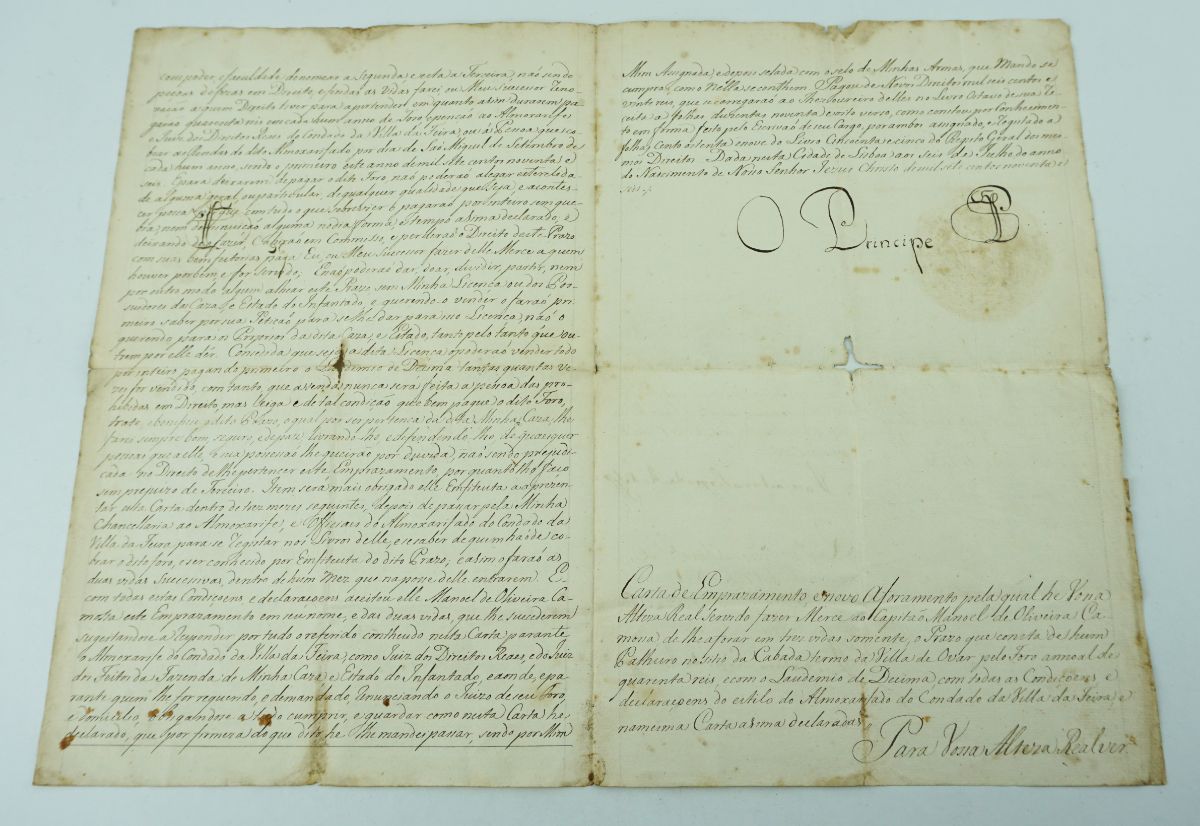 com poder, e faculdade de nomear a Segunda, e esta a Terceira, naõ sendo
pessoas defezas em Direito, e findas as vidas farei eu, ou Meu Sucessor renovação
a quem Direito tiver para a pertender; em quanto assim durarem pagaraõ
quarenta reis em cada hum anno de foro e pençaõ ao Almoxarife
e Juiz dos Direitos Reaes do Condado da Villa da Feira, ou á Pessoa que cobrar
as Rendas do dito Almoxarifado por dia de Saõ Miguel de Setembro de
cada hum anno, sendo o primeiro este anno de mil sete centos noventa e
seis. E para deixarem de pagar o dito Foro naõ poderaõ alegar esterelidade
alguma geral, ou particular, de qualquer qualidade que seja, e aconteser
possa com tudo o que sobre si er e pagaraõ por inteiro sem quebra,
nem deminuição alguma nesta forma, e tempo assima declarado, e
deixando de o fazer, Cahiraõ em Commisso, e perderaõ o Direito deste Prazo
com suas bemfeitorias para Eu, ou Meu Sucessor fazer delle Merce a quem
houver por bem, e for servido; E naõ poderaõ dar, doar, dividir, partir, nem
por outro modo algum alhear este Prazo sem Minha Licença ou dos Possuidores
da Caza, e Estado do Infantado, e querendo-o vender o faraõ primeiro
saber por sua Petiçaõ para se lhe dar para isso Licença, naõ o
querendo para os Proprios da dita Caza, e Estado, tanto pelo tanto que outrem
por elle dér. Concedida que seja a dita Licença o poderaõ vender todo
por inteiro pagando primeiro o Laudemio de Dezima tantas quantas vezes
for vendido, com tanto, que a venda nunca será feita a pessoa das prohibidas
em Direito, mas leiga e de tal condição que bem pague o dito Foro,
trate, e benefice o dito Prazo, o qual por ser pertença da dita Minha Caza, lhe
farei sempre bom, seguro, e de paz livrando lho, e defendendo lho de quaesquer
pessoas que a elle, e sua possessaõ lhe queiraõ por duvida, naõ sendo prejudicada
no Direito de lhe pertencer este Emprazamento, por quanto lho faço
sem prejuizo de Terceiro. Item será mais obrigado elle Emfiteuta a aprezentar,
esta Carta dentro de trez mezes seguintes, depois de passar pela Minha
Chancellaria ao Almoxarife, e Officiaes do Almoxarifado do Condado da
Villa da Feira para se registar nos Livros delle, e se saber de quem há de cobrar
o dito foro, e ser conhecido por Emfiteuta do dito Prazo, e assim o faraõ as
duas vidas Successivas, dentro de hum Mez que na posse delle entrarem. E
com todas estas Condiçoens, e declaraçoens aceitou elle Manoel de Oliveira Camossa
este Emprazamento em seu nome, e das duas vidas, que lhe succederem
sugeitandose a responder por tudo o referido contheudo nesta Carta parante
o Almoxarife do Condado da Villa da Feira, como Juiz dos Direitos Reaes, e do Juiz
dos Feitos da Fazenda de Minha Caza, e Estado do Infantado, e aonde, e parante
quem lhe for requerido e demandado, renunciando o Juizo de seu foro,
e domicilio, obrigandose a todo cumprir, e guardar como nesta Carta he
declarado, que por firmeza do que dito hé lhe mandei passar, sendo por Mim
Mim Assignada, e depois selada com o selo de Minhas Armas, que Mando se
cumpra como nella se conthem. Pagou de Novos Direitos mil seis centos e
vinte reis, que se carregaraõ ao Thezoureiro delles no Livro Oitavo de sua Receita
a folhas duzentas noventa e oito verso, como constou por Conhecimento
em forma feito pelo Escrivaõ de seu Cargo, por ambos assignado, e registado a
folhas cento oitenta e nove do Livro Cincoenta e cinco do Registo Geral dos mesmos
Direitos. Dada nesta Cidade de Lisboa aos seis de Julho anno
do Nascimento de Nosso Senhor Jezus Christo de mil sete centos noventa e
seis.
O Principe
Carta de Emprazamento, e novo Aforamento pela qual he Vossa
Alteza Real servido fazer Merce ao Capitaõ Manoel de Oliveira Camossa
de lhe aforar em trez vidas somente, o Prazo que consta de hum
Palheiro no sitio da Cabada termo da Villa de Ovar pelo Foro annoal de
quarenta reis, e com o Laudemio de Dezima, com todas as Condiçoens e
declaraçoens do estilo do Almoxarifado do Condado da Villa da Feira, e
na mesma Carta assima declaradas.
Para Vossa Alteza Real ver.